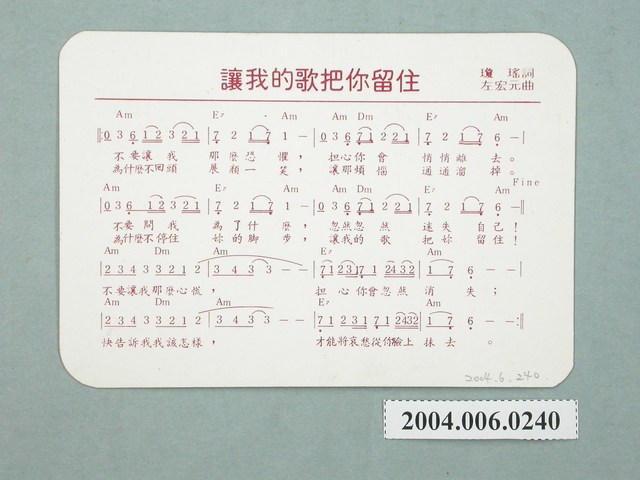 讓我的歌把你留住
瓊 瑤詞
左宏元曲
Am E7 Am Am Dm E7 Am
0 3 6 1 2 3 2 1 7 2 1 7 1 — 0 3 6 7 1 2 2 1 7 2 1 7 6 —
不要讓 我 那麼恐 懼， 担心你會 悄悄離 去。
為什麼不回頭 展顏一 笑， 讓那煩惱 通通溜 掉。
Am E7 Am Dm E7 Am Fine
0 3 6 1 2 3 2 1 7 2 1 7 1 — 0 3 6 7 1 2 2 1 7 2 1 7 6 —
不要問我 為了什 麼， 忽然忽然 迷失 自己！
為什麼不停住 妳的脚 步， 讓我的 歌 把妳 留住！
Am Dm Am E7 Am
2 3 4 3 3 2 1 2 3 4 3 3 — — 7 1 2 3 1 7 1 2 4 3 2 1 7 6 — —
不要讓我那麼心慌， 担 心你會忽然 消 失；
Am Dm Am E7 Am
2 3 4 3 3 2 1 2 3 4 3 3 — — 7 1 2 3 1 7 1 2 4 3 2 1 7 6 — —
快告訴我我該怎樣， 才能將哀愁從你臉上 抹 去 。
2004.6.240.
2004.006.0240